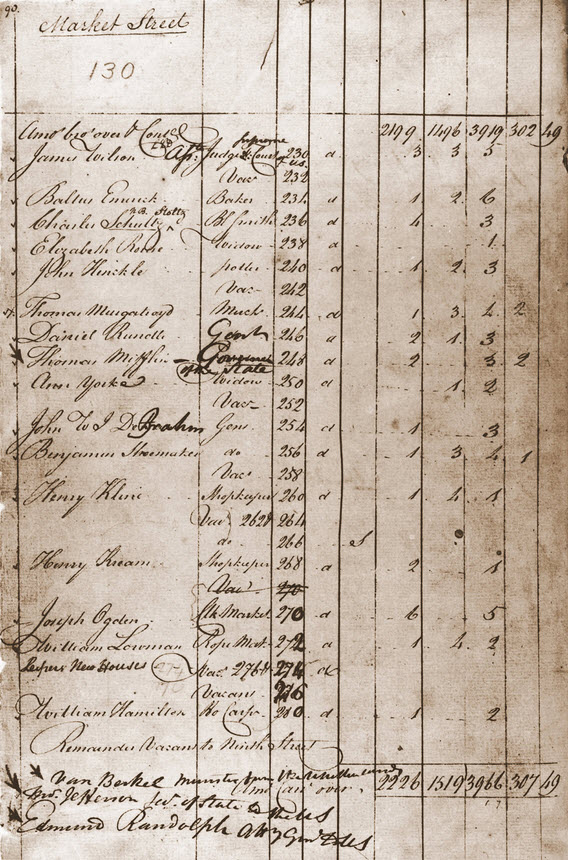 90.
Market Street
130
Amo' bro' over & Cons'd 2199 1496 3919 302 49
James Wilson Judge Supreme Court of U.S. 230 a 3 3 5
Vac' 232
Baltus Emrick Baker 234 a 1 2 6
Charles Schultz Bl. Smith 236 a 4 3
Elizabeth Widow 238 a 1
John Hinckle potter 240 a 1 2 3
Vac- 242
Thomas Murgatroyd Mercht 244 a 1 3 4 2
Daniel Rundle Gent 246 a 2 1 3
Thomas Mifflin Governor of the State 248 a 2 3 2
Ann Yorke Widow 250 a 1 2
Vac- 252
John W I De Brahm Gent 254 a 1 3
Benjamin Shoemaker do 256 a 1 3 4 1
Vac' 258
Henry Kline Shopkeeper 260 a 1 4 1
Vac' 262 & 264
do 266 s
Henry Kream Shopkeeper 268 a 2 1
Vac' 270
Joseph Ogden Clk Market 270 a 6 5
William Lowman Rope Mak. 272 a 1 4 2
New Houses Vac' 276 & 274 a
Vacant
William Hamilton Ho Carpr 280 a 1 2
Remainder Vacant to Ninth Street
Van Berkel minister from the Netherlands
Amo' car' over 2226 1519 3966 307 49
Jefferson Secy. of State to the U S
Edmund Randolph Atty Genl